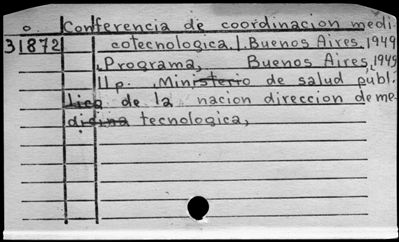 o. Conferencia de coordinacion medi-
31872 cotecnologica, I. Buenos Aires, 1949
Programa, Buenos Aires, 1949
11p. Ministerio de salud publ-
lica de la nacion direccion de me-
dicina tecnologica,